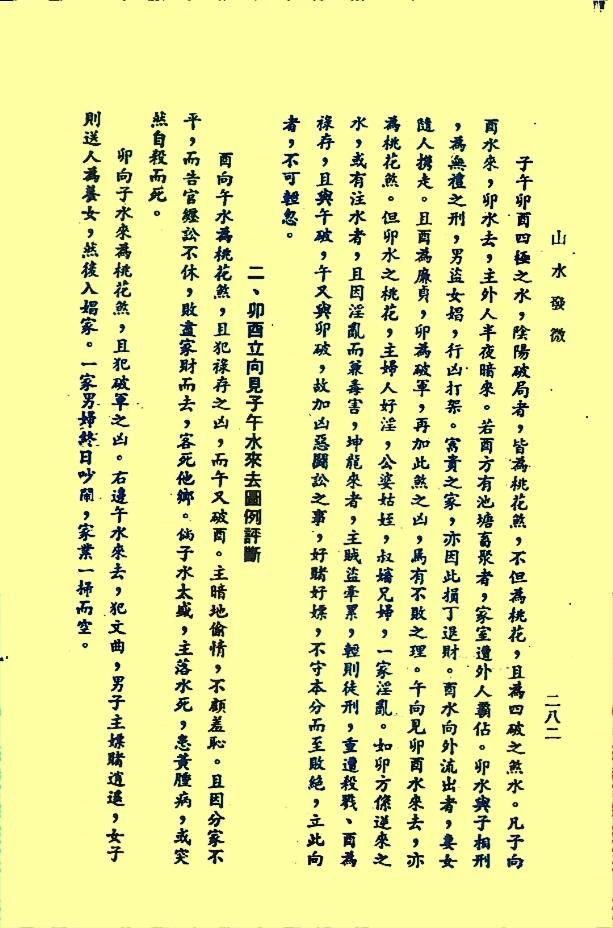 山水發微
二八二
子午卯酉四極之水，陰陽破局者，皆為桃花煞，不但為桃花，且為四破之煞水。凡子向
酉水來，卯水去，主外人半夜暗來。若酉方有池塘畜聚者，家室遭外人霸佔。卯水與子相刑
，為無禮之刑，男盜女娼，行凶打架。富貴之家，亦因此損丁退財。酉水向外流出者，妻女
隨人携走。且酉為廉貞，卯為破軍，再加此煞之凶，焉有不敗之理。午向見卯酉水來去，亦
為桃花煞。但卯水之桃花，主婦人好淫，公婆姑姪，叔嬸兄婦，一家淫亂。如卯方係逆來之
水，或有注水者，且因淫亂而兼毒害，坤龍來者，主賊盜牽累，輕則徒刑，重遭殺戮、酉為
祿存，且與午破，午又與卯破，故加凶惡鬪訟之事，好賭好嫖，不守本分而至敗絕，立此向
者，不可輕忽。
二、卯酉立向見子午水來去圖例評斷
酉向午水為桃花煞，且犯祿存之凶，而午又破酉。主暗地偷情，不顧羞恥。且因分家不
平，而告官纏訟不休，敗盡家財而去，客死他鄉。倘子水太盛，主落水死，患黃腫病，或突
然自殺而死。
卯向子水來為桃花煞，且犯破軍之凶。右邊午水來去，犯文曲，男子主嫖賭逍遙，女子
則送人為養女，然後入娼家。一家男婦終日吵鬧，家業一掃而空。